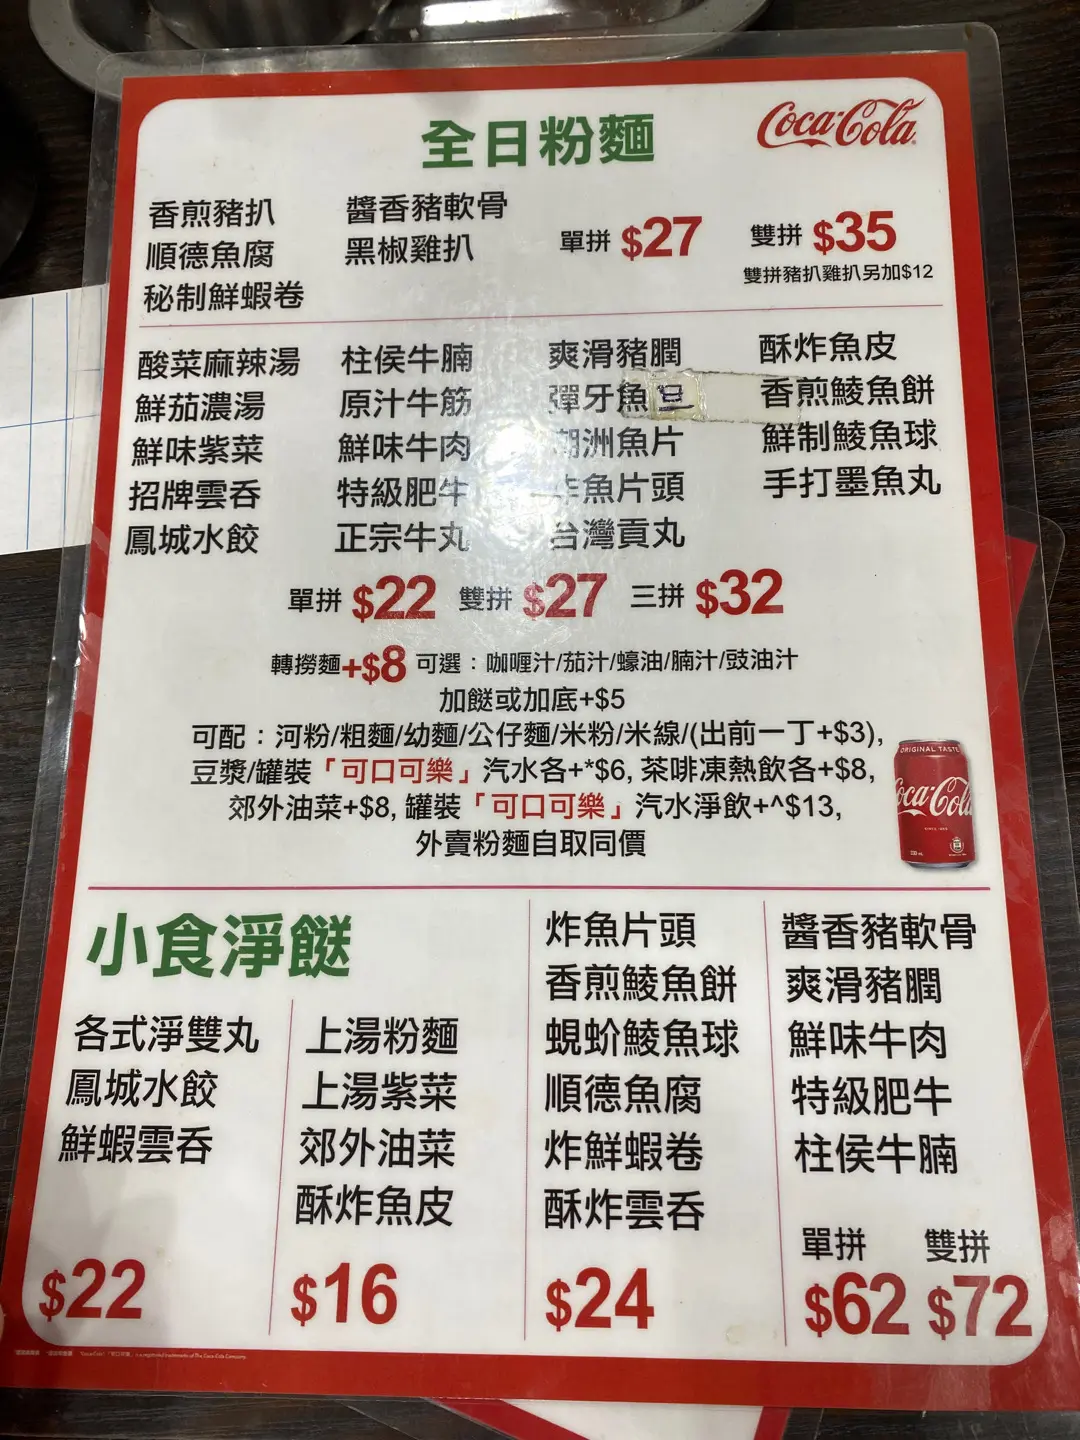 全日粉麵
Coca-Cola
香煎豬扒
順德魚腐
秘制鮮蝦卷
醬香豬軟骨
黑椒雞扒
單拼 $27
雙拼 $35
雙拼豬扒雞扒另加$12
酸菜麻辣湯
鮮茄濃湯
鮮味紫菜
招牌雲吞
鳳城水餃
柱侯牛腩
原汁牛筋
鮮味牛肉
特級肥牛
正宗牛丸
爽滑豬膶
彈牙魚旦
潮洲魚片
炸魚片頭
台灣貢丸
酥炸魚皮
香煎鯪魚餅
鮮制鯪魚球
手打墨魚丸
單拼 $22 雙拼 $27 三拼 $32
轉撈麵+$8 可選：咖喱汁/茄汁/蠔油/腩汁/豉油汁
加餸或加底+$5
可配：河粉/粗麵/幼麵/公仔麵/米粉/米線/(出前一丁+$3),
豆漿/罐裝「可口可樂」汽水各+*$6, 茶啡凍熱飲各+$8,
郊外油菜+$8, 罐裝「可口可樂」汽水淨飲+^$13,
外賣粉麵自取同價
ORIGINAL TASTE
Coca-Cola
小食淨餸
各式淨雙丸
鳳城水餃
鮮蝦雲吞
$22
上湯粉麵
上湯紫菜
郊外油菜
酥炸魚皮
$16
炸魚片頭
香煎鯪魚餅
蜆蚧鯪魚球
順德魚腐
炸鮮蝦卷
酥炸雲吞
$24
醬香豬軟骨
爽滑豬膶
鮮味牛肉
特級肥牛
柱侯牛腩
單拼 雙拼
$62 $72